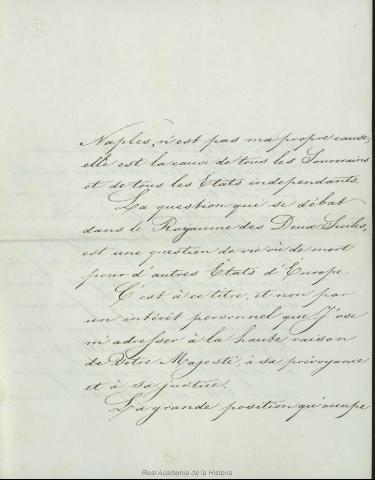 Naples, n'est pas ma propre cause,
elle est la cause de tous les Souverains
et de tous les Etats independants.
La question qui se débat
dans le Royaume des Deux Siciles,
est une question de vie ou de mort
pour d'autres États d'Europe.
C'est à ce titre, et non par
un intérêt personnel que J'ose
m'adresser à la haute raison
de Votre Majesté, à sa prévoyance
et à sa justice.
La grande position qu'occupe
Real Academia de la Historia